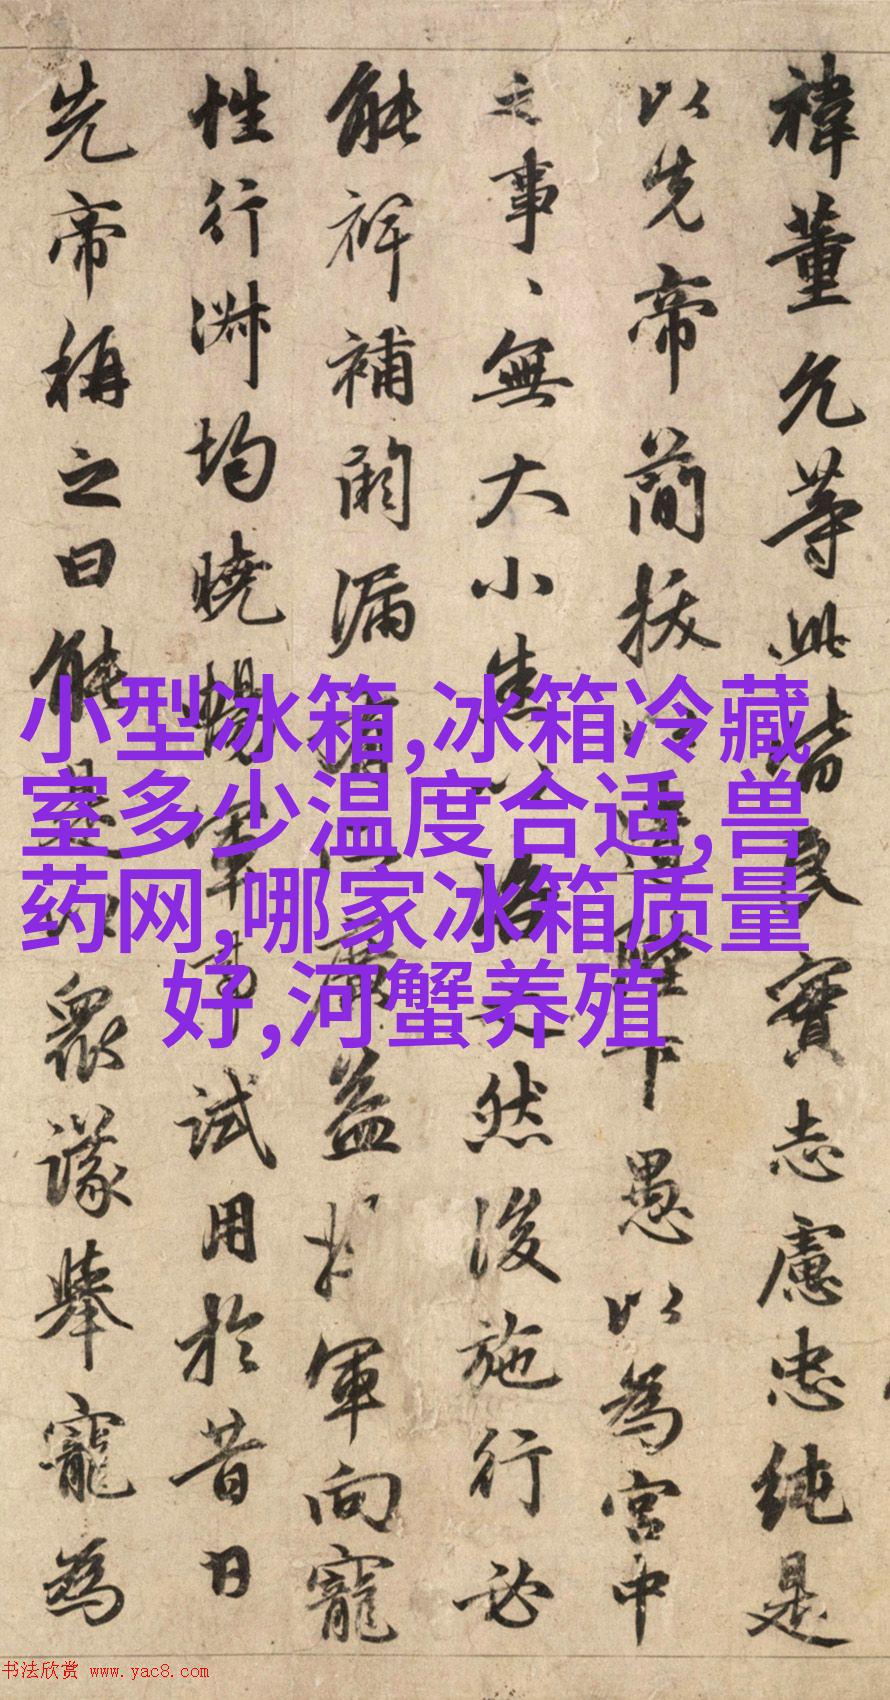 禕董允等此皆良實志慮忠純是
以先帝簡拔以遺陛下愚以為宮中
之事、無大小悉以咨之然後施行必
能裨補闕漏有所廣益將軍向寵
性行淑均曉暢軍事試用於昔日
先帝稱之曰能是以衆議舉寵為
小型冰箱,冰箱冷藏
室多少温度合适,兽
药网,哪家冰箱质量
好,河蟹养殖
书法欣赏 www.yac8.com